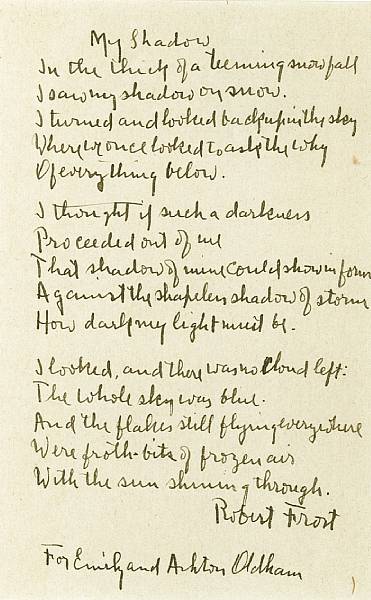 My Shadow
In the thick of a teeming snow fall
I saw my shadow on snow.
I turned and looked back up in the sky
Where we once looked to ask the why
Of everything below.
I thought if such a darkness
Proceeded out of me
That shadow of mine could show in form
Against the shapeless shadow of storm
How dark my light must be.
I looked, and there was no cloud left:
The whole sky was blue.
And the flakes still flying everywhere
Were froth-bits of frozen air
With the sun shining through.
Robert Frost
For Emily and Ashton Oldham